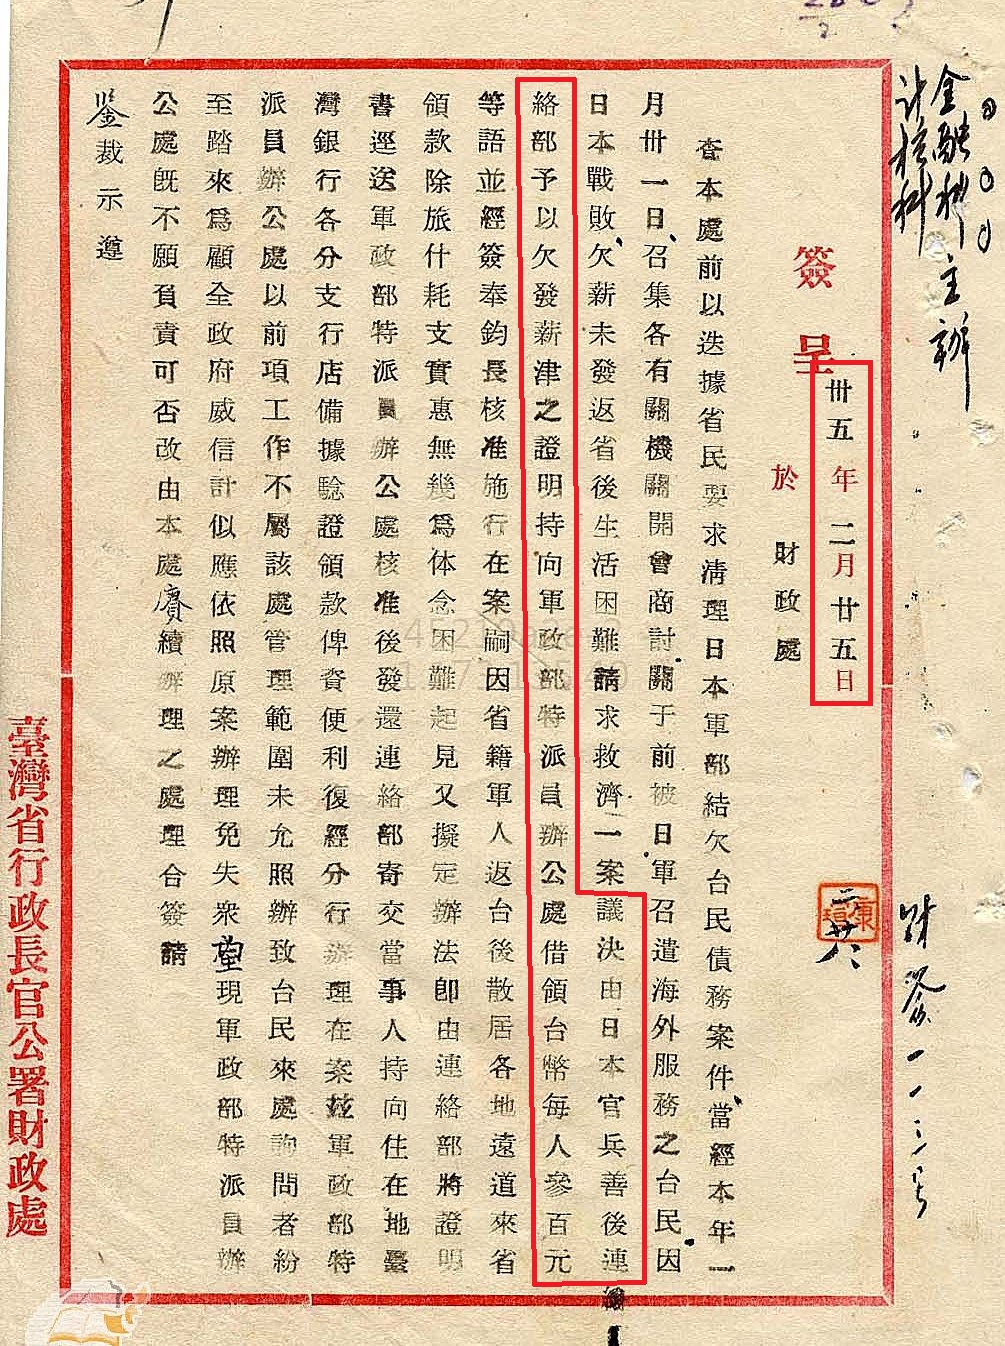 金融科主辦
計核科
簽呈
卅五年二月廿五日
於財政處
查本處前以迭據省民要求清理日本軍部結欠台民債務案件當經本年一
月卅一日召集各有關機關開會商討關于前被日軍召遣海外服務之台民因
日本戰敗欠薪未發返省後生活困難請求救濟一案議決由日本官兵善後連
絡部予以欠發薪津之證明持向軍政部特派員辦公處借領台幣每人參百元
等語並經簽奉鈞長核准施行在案嗣因省籍軍人返台後散居各地遠道來省
領款除旅什耗支實惠無幾為体念困難起見又擬定辦法卽由連絡部將證明
書逕送軍政部特派員辦公處核准後發還連絡部寄交當事人持向住在地臺
灣銀行各分支行店備據驗證領款俾資便利復經分行辦理在案茲軍政部特
派員辦公處以前項工作不屬該處管理範圍未允照辦致台民來處詢問者紛
至踏來為顧全政府威信計似應依照原案辦理免失衆望現軍政部特派員辦
公處旣不願負責可否改由本處賡續辦理之處理合簽請
鉴裁示遵
二廿六
財簽一一三号
臺灣省行政長官公署財政處